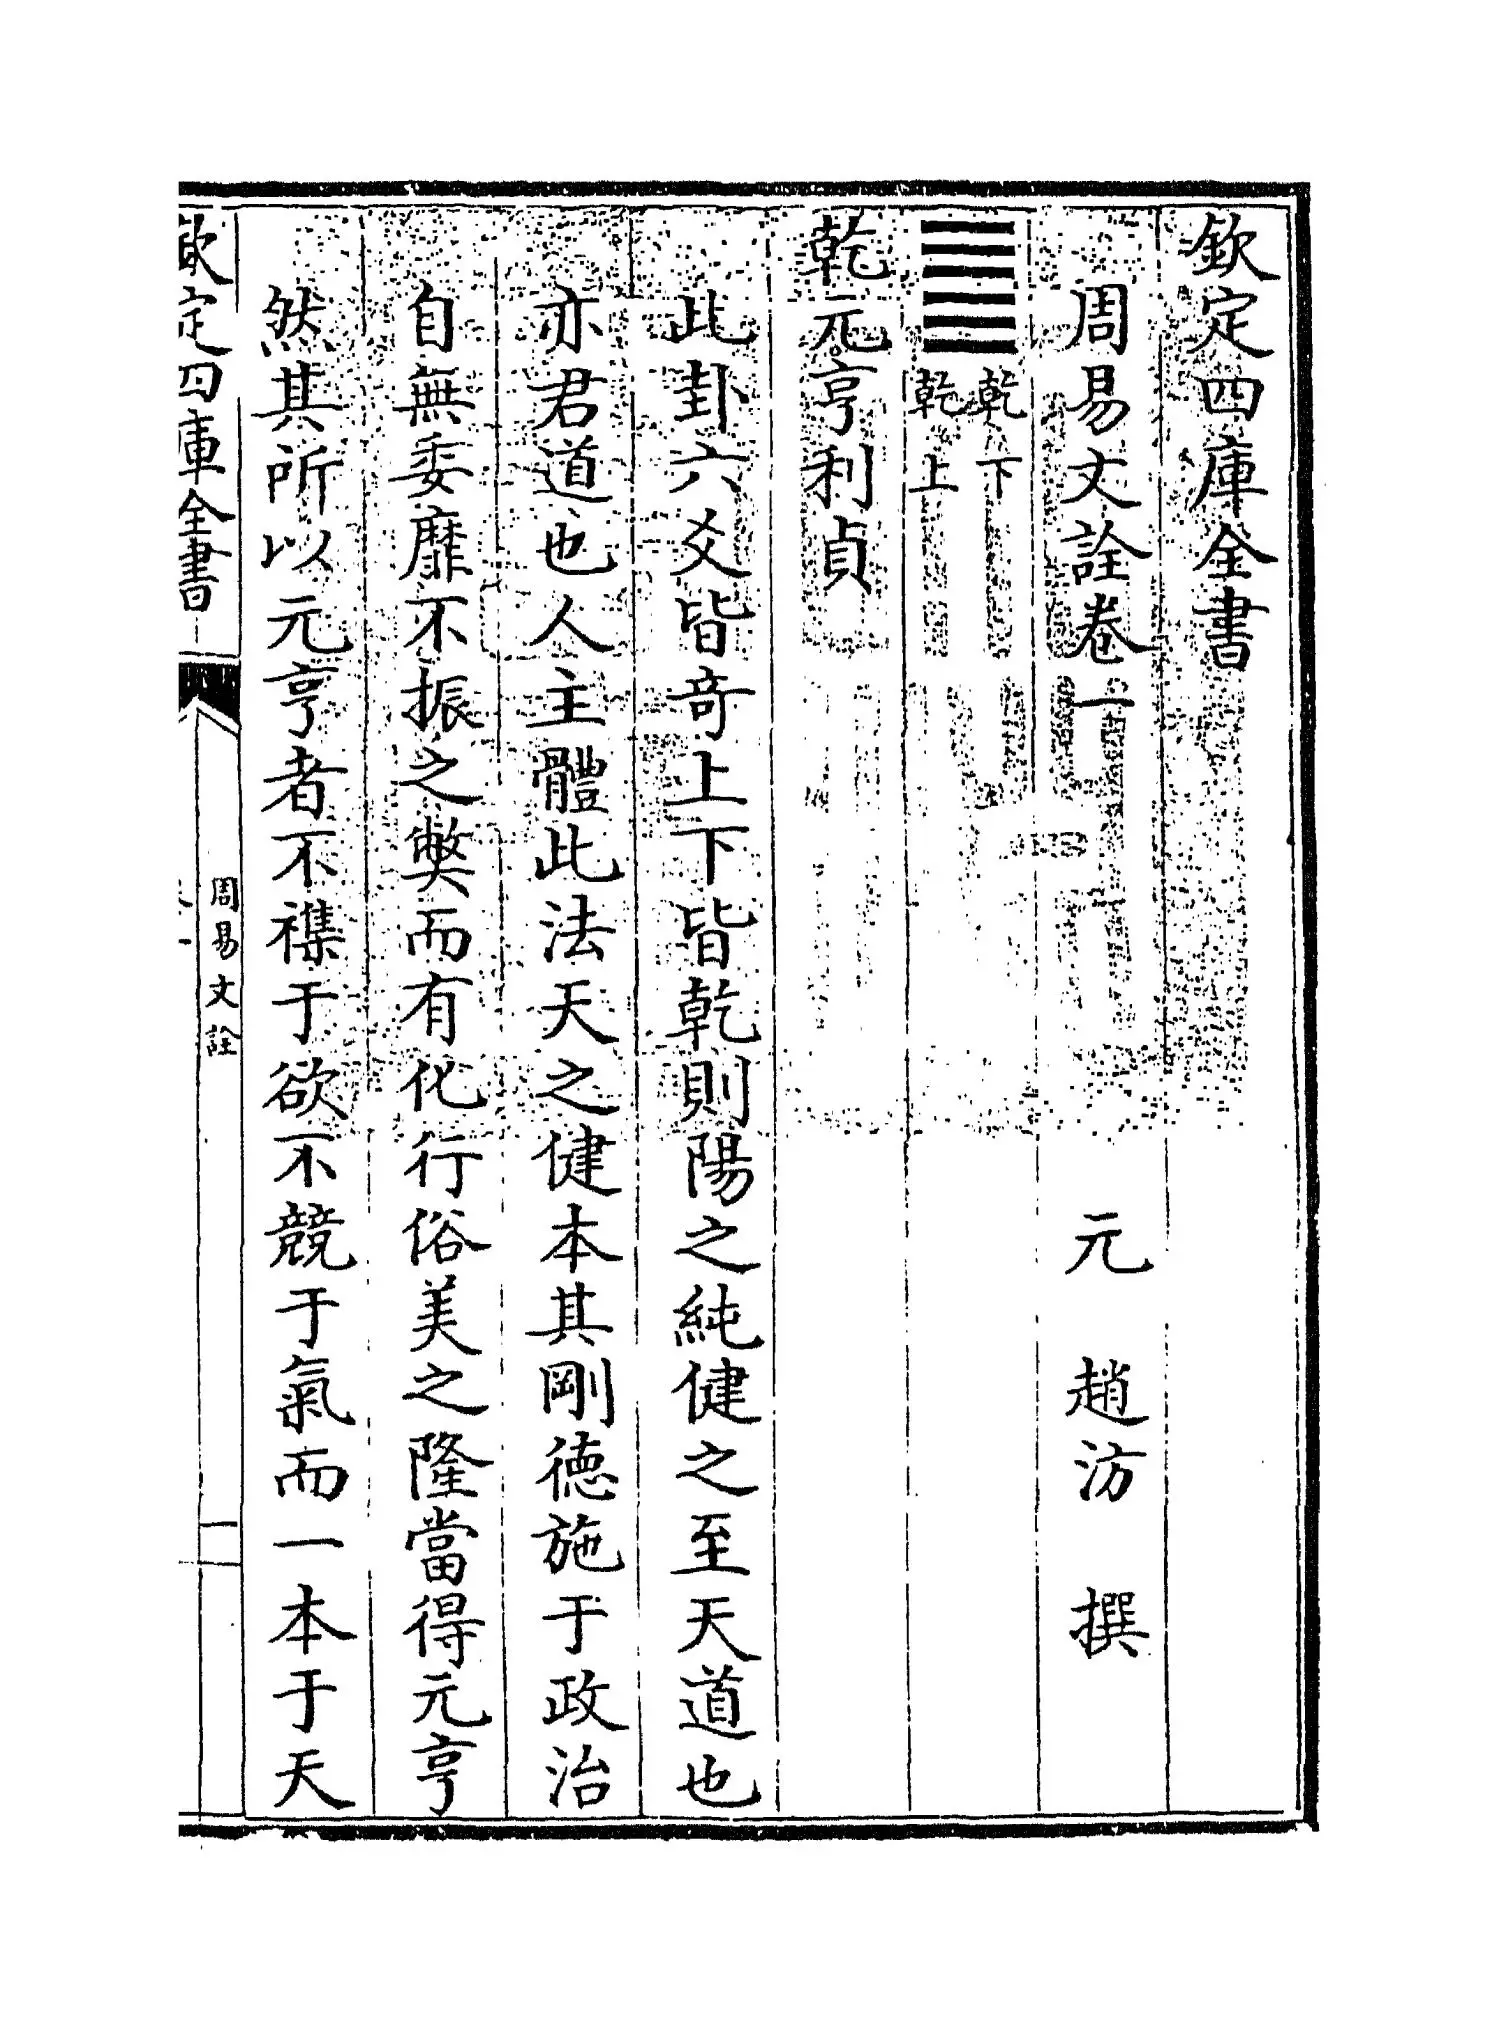 欽定四庫全書
周易文詮卷一
元 趙汸 撰
䷀
乾下
乾上
乾元亨利貞
此卦六爻皆奇上下皆乾則陽之純健之至天道也
亦君道也人主體此法天之健本其剛德施于政治
自無委靡不振之獘而有化行俗美之隆當得元亨
然其所以元亨者不襍于欲不競于氣而一本于天
欽定四庫全書
周易文詮
一